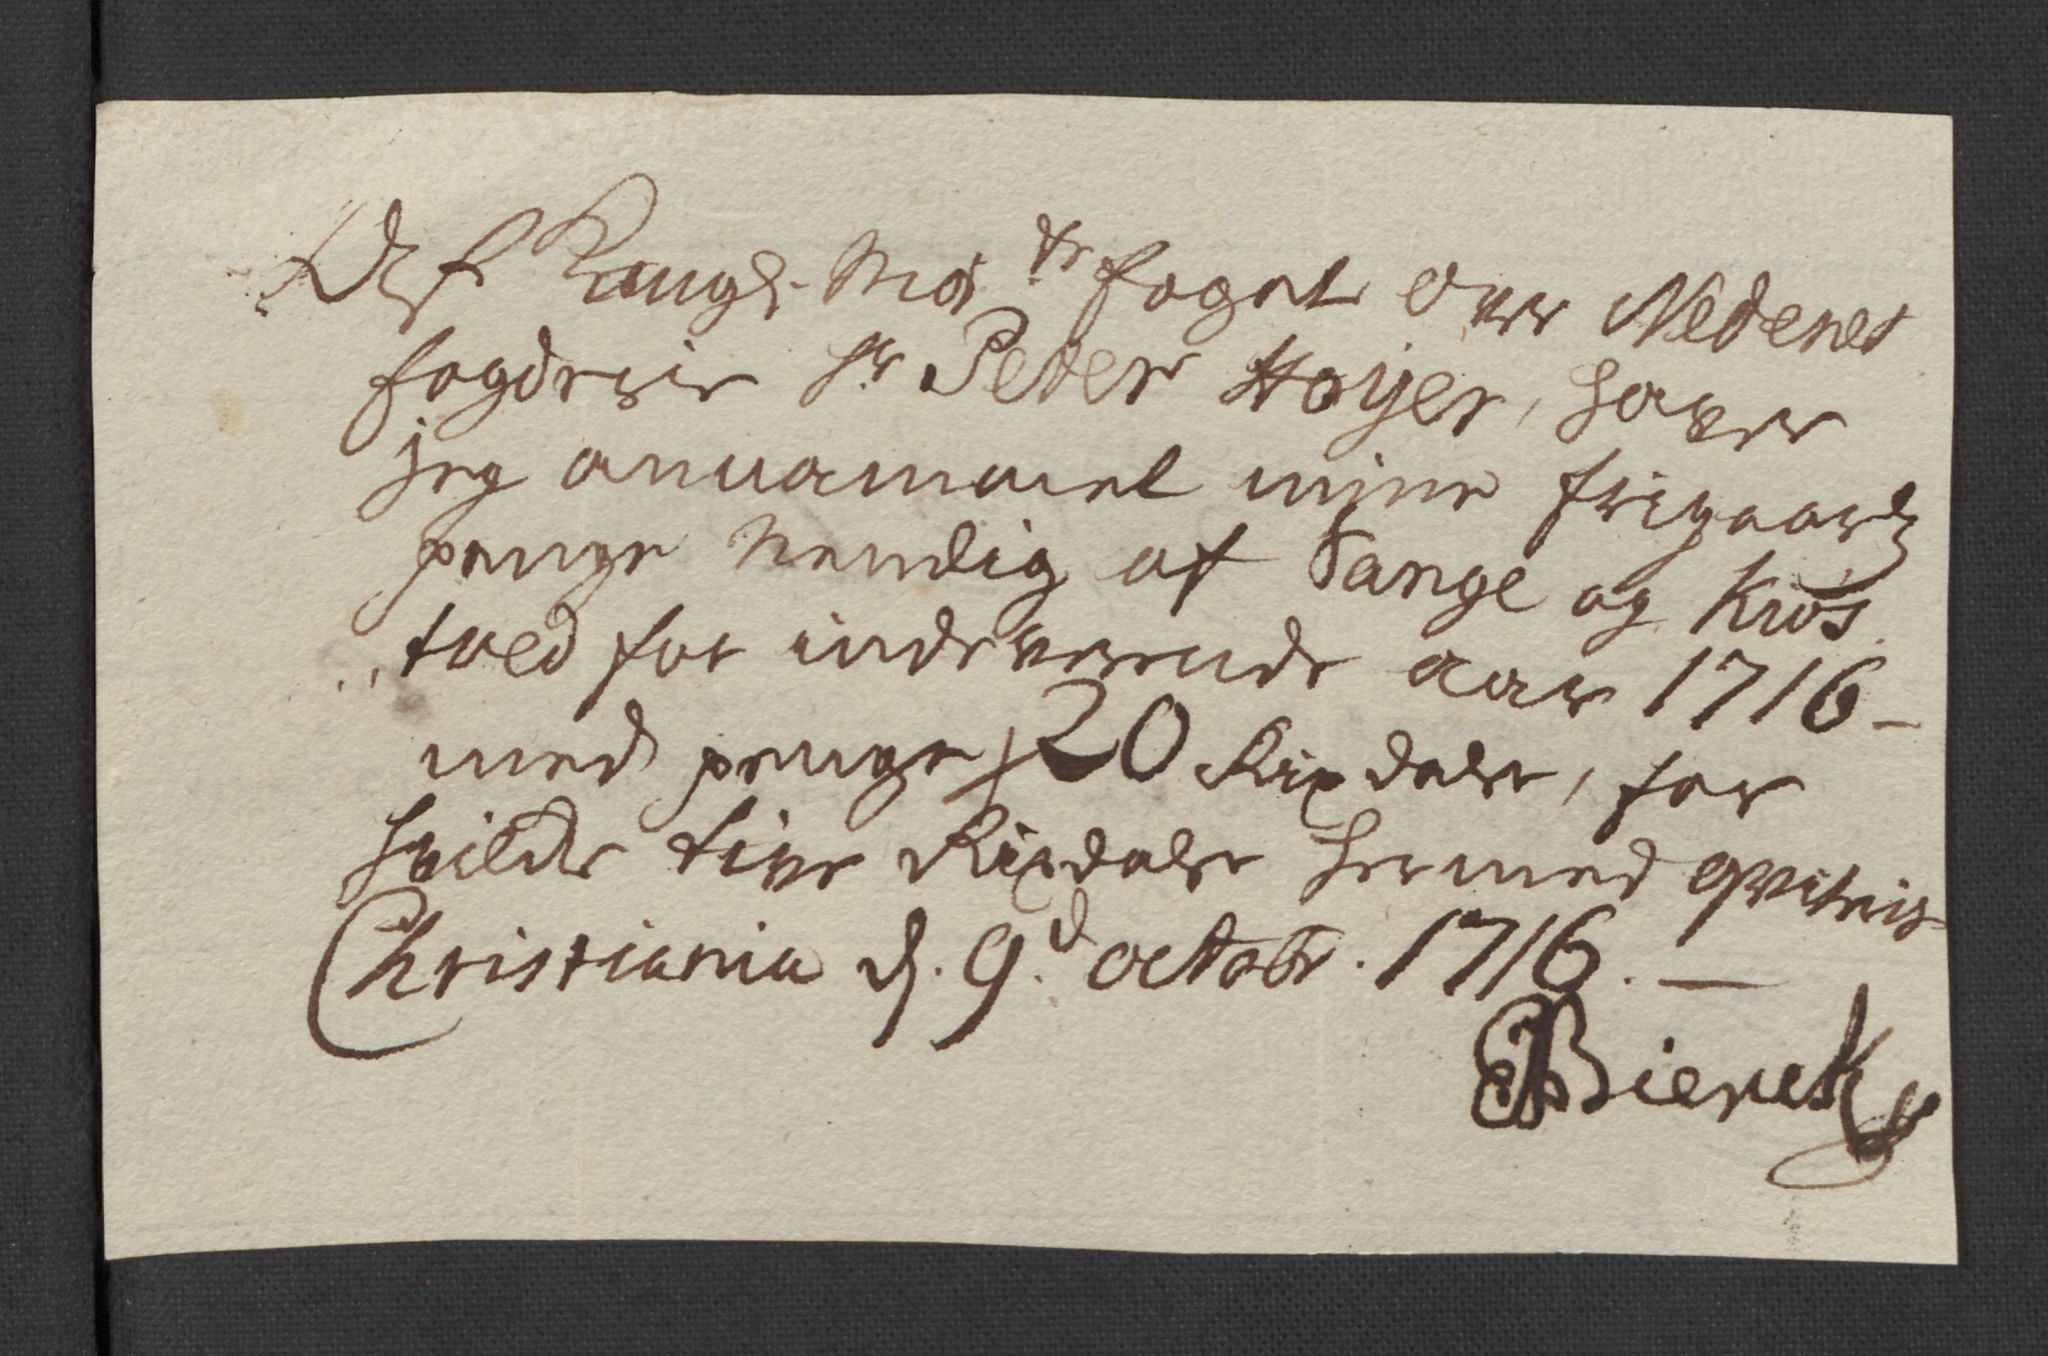 Af Kongl. Mai.ts fogel over Nedenes
fogderie hr Peter Høyer, haver
jeg annammet mine frigaards
penge Nemlig af Tange og Kros
tved for indeværende aar 1716 –
med penge 20 Rixdaler, for
hvilke tive Rixdaler hermed qviteris
Christiania d. 9.d octobr. 1716. —
Bierck